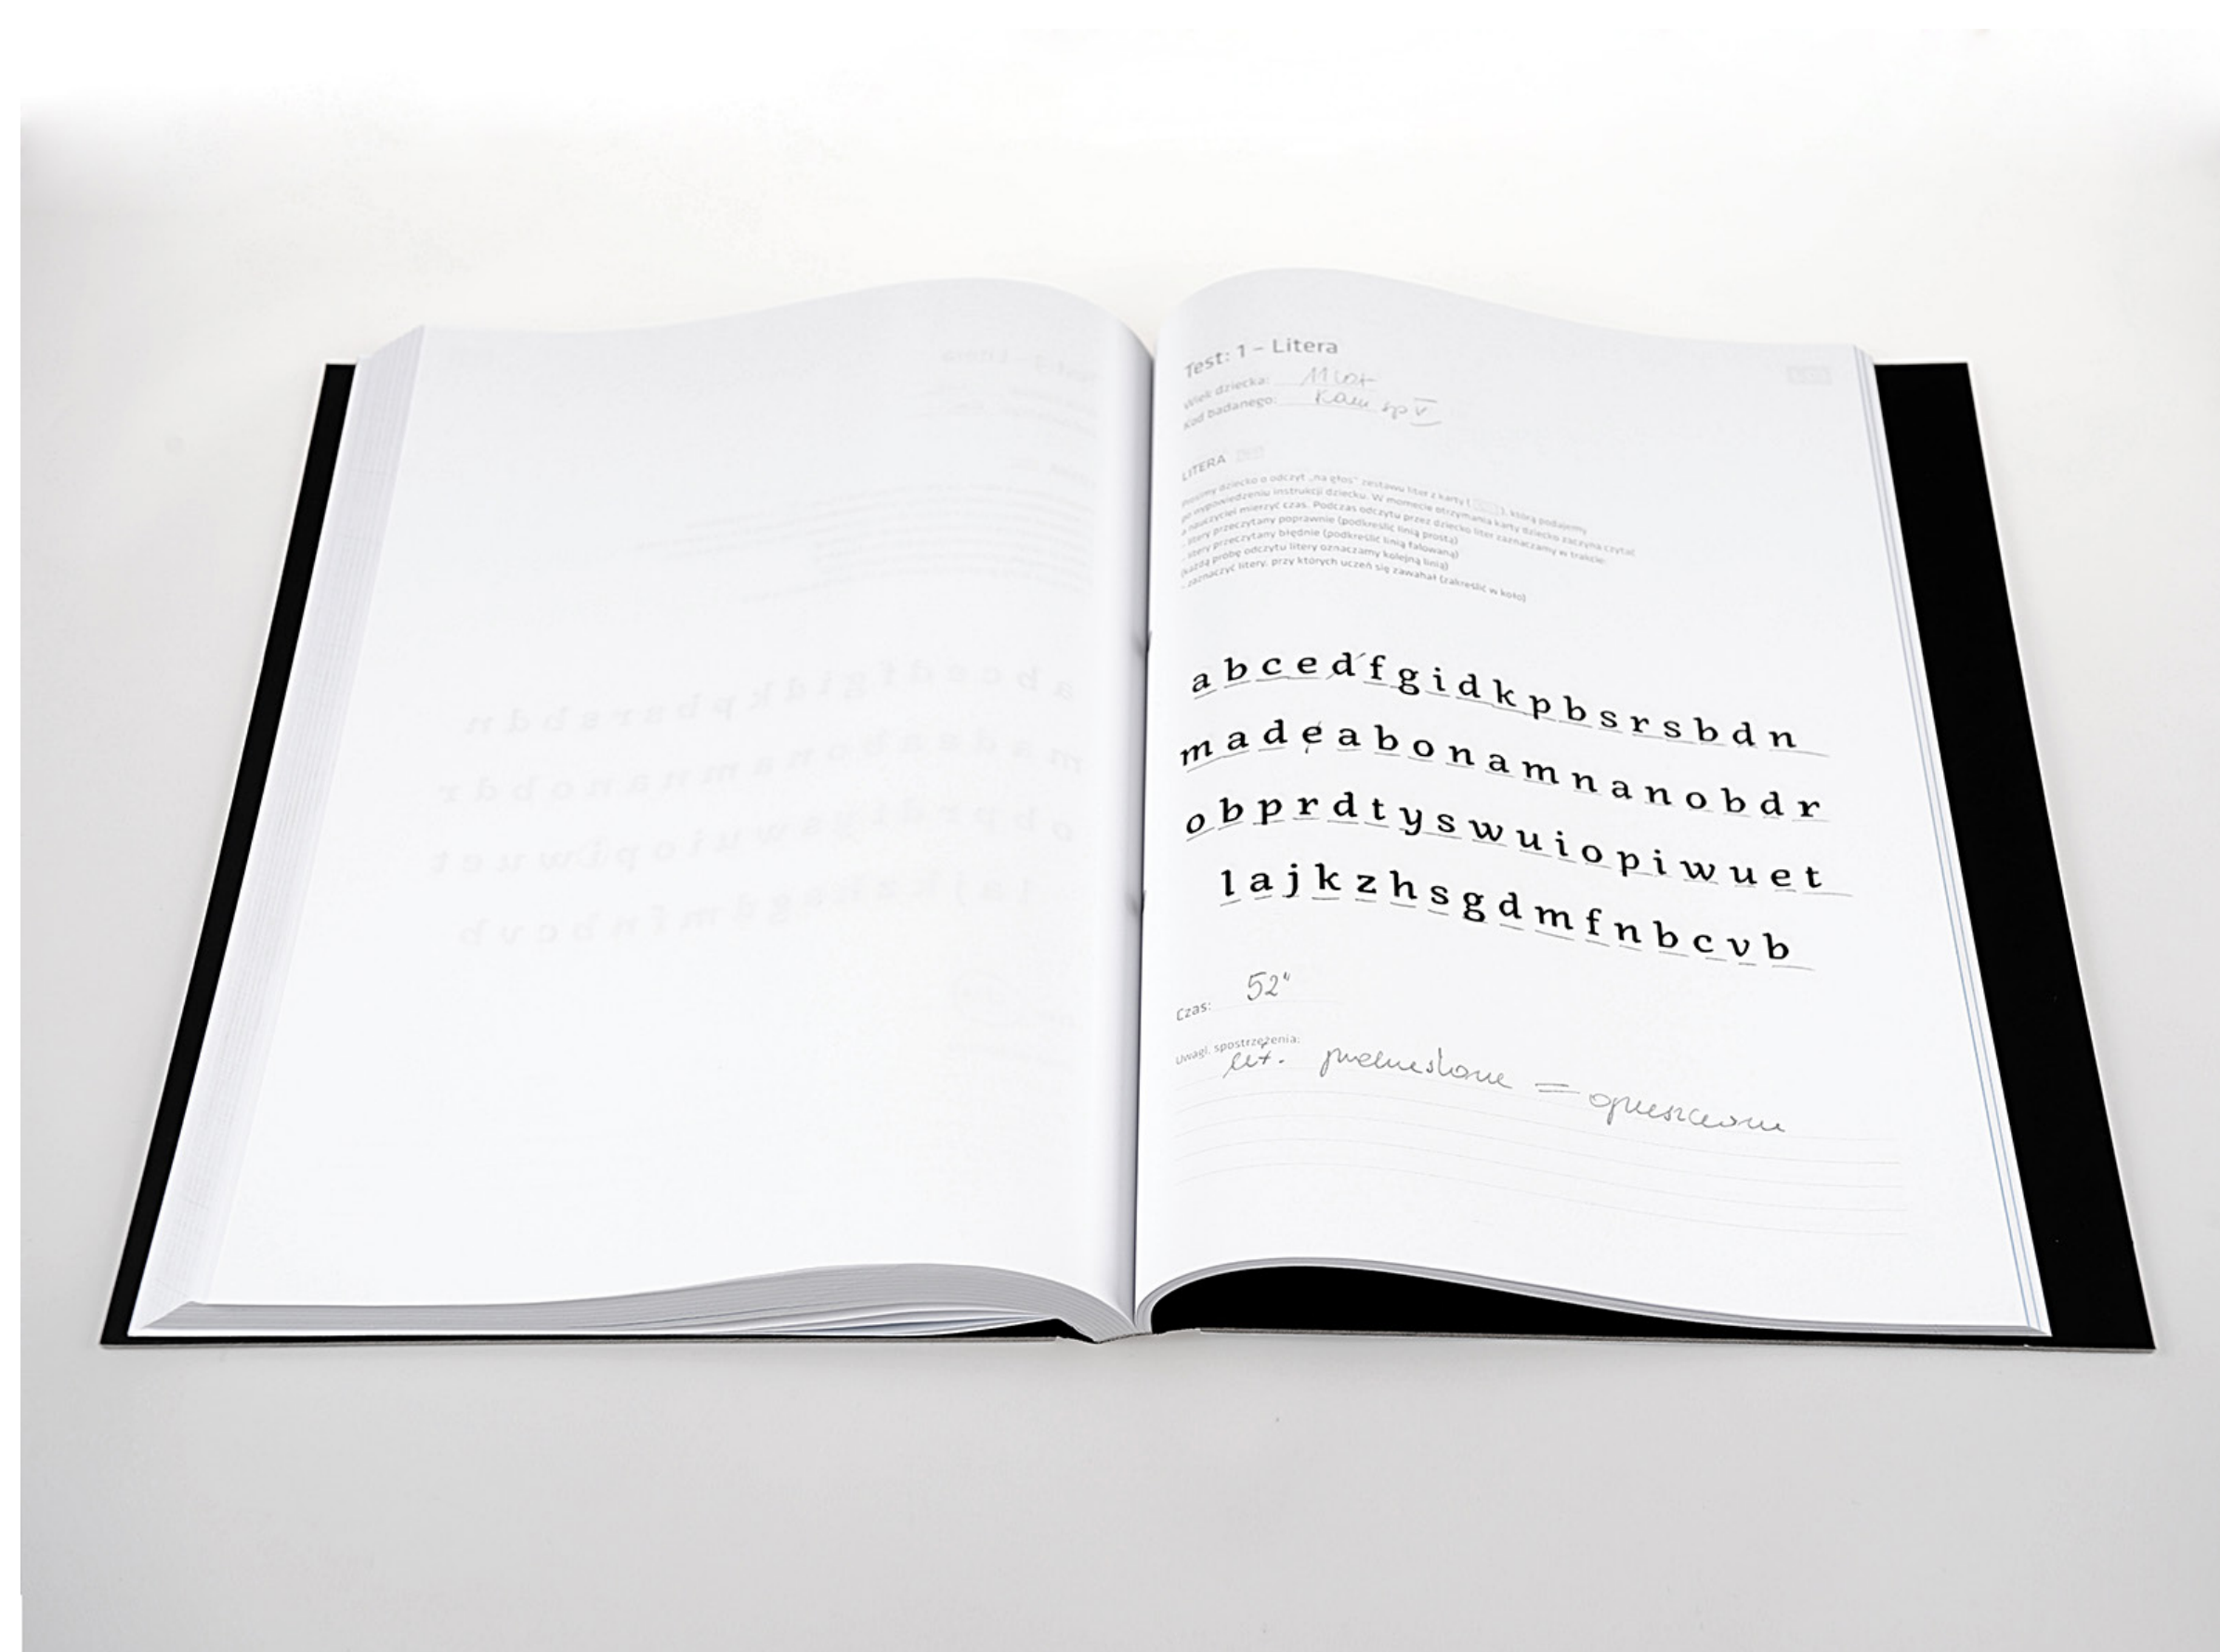 Test: 1 – Litera
Wiek dziecka: 11 lat
Kod badanego: Kam sp V
LITERA
Prosimy dziecko o odczyt „na głos” zestawu liter z karty ( ), którą podajemy
po wypowiedzeniu instrukcji dziecku. W momencie otrzymania karty dziecko zaczyna czytać
a nauczyciel mierzyć czas. Podczas odczytu przez dziecko liter zaznaczamy w trakcie:
- litery przeczytany poprawnie (podkreślić linią prostą)
- litery przeczytany błędnie (podkreślić linią falowaną)
(każdą próbę odczytu litery oznaczamy kolejną linią)
- zaznaczyć litery, przy których uczeń się zawahał (zakreślić w koło)
a b c e d f g i d k p b s r s b d n
m a d e a b o n a m n a n o b d r
o b p r d t y s w u i o p i w u e t
l a j k z h s g d m f n b c v b
Czas: 52"
Uwagi, spostrzeżenia:
lit. przekreślone = opuszczone